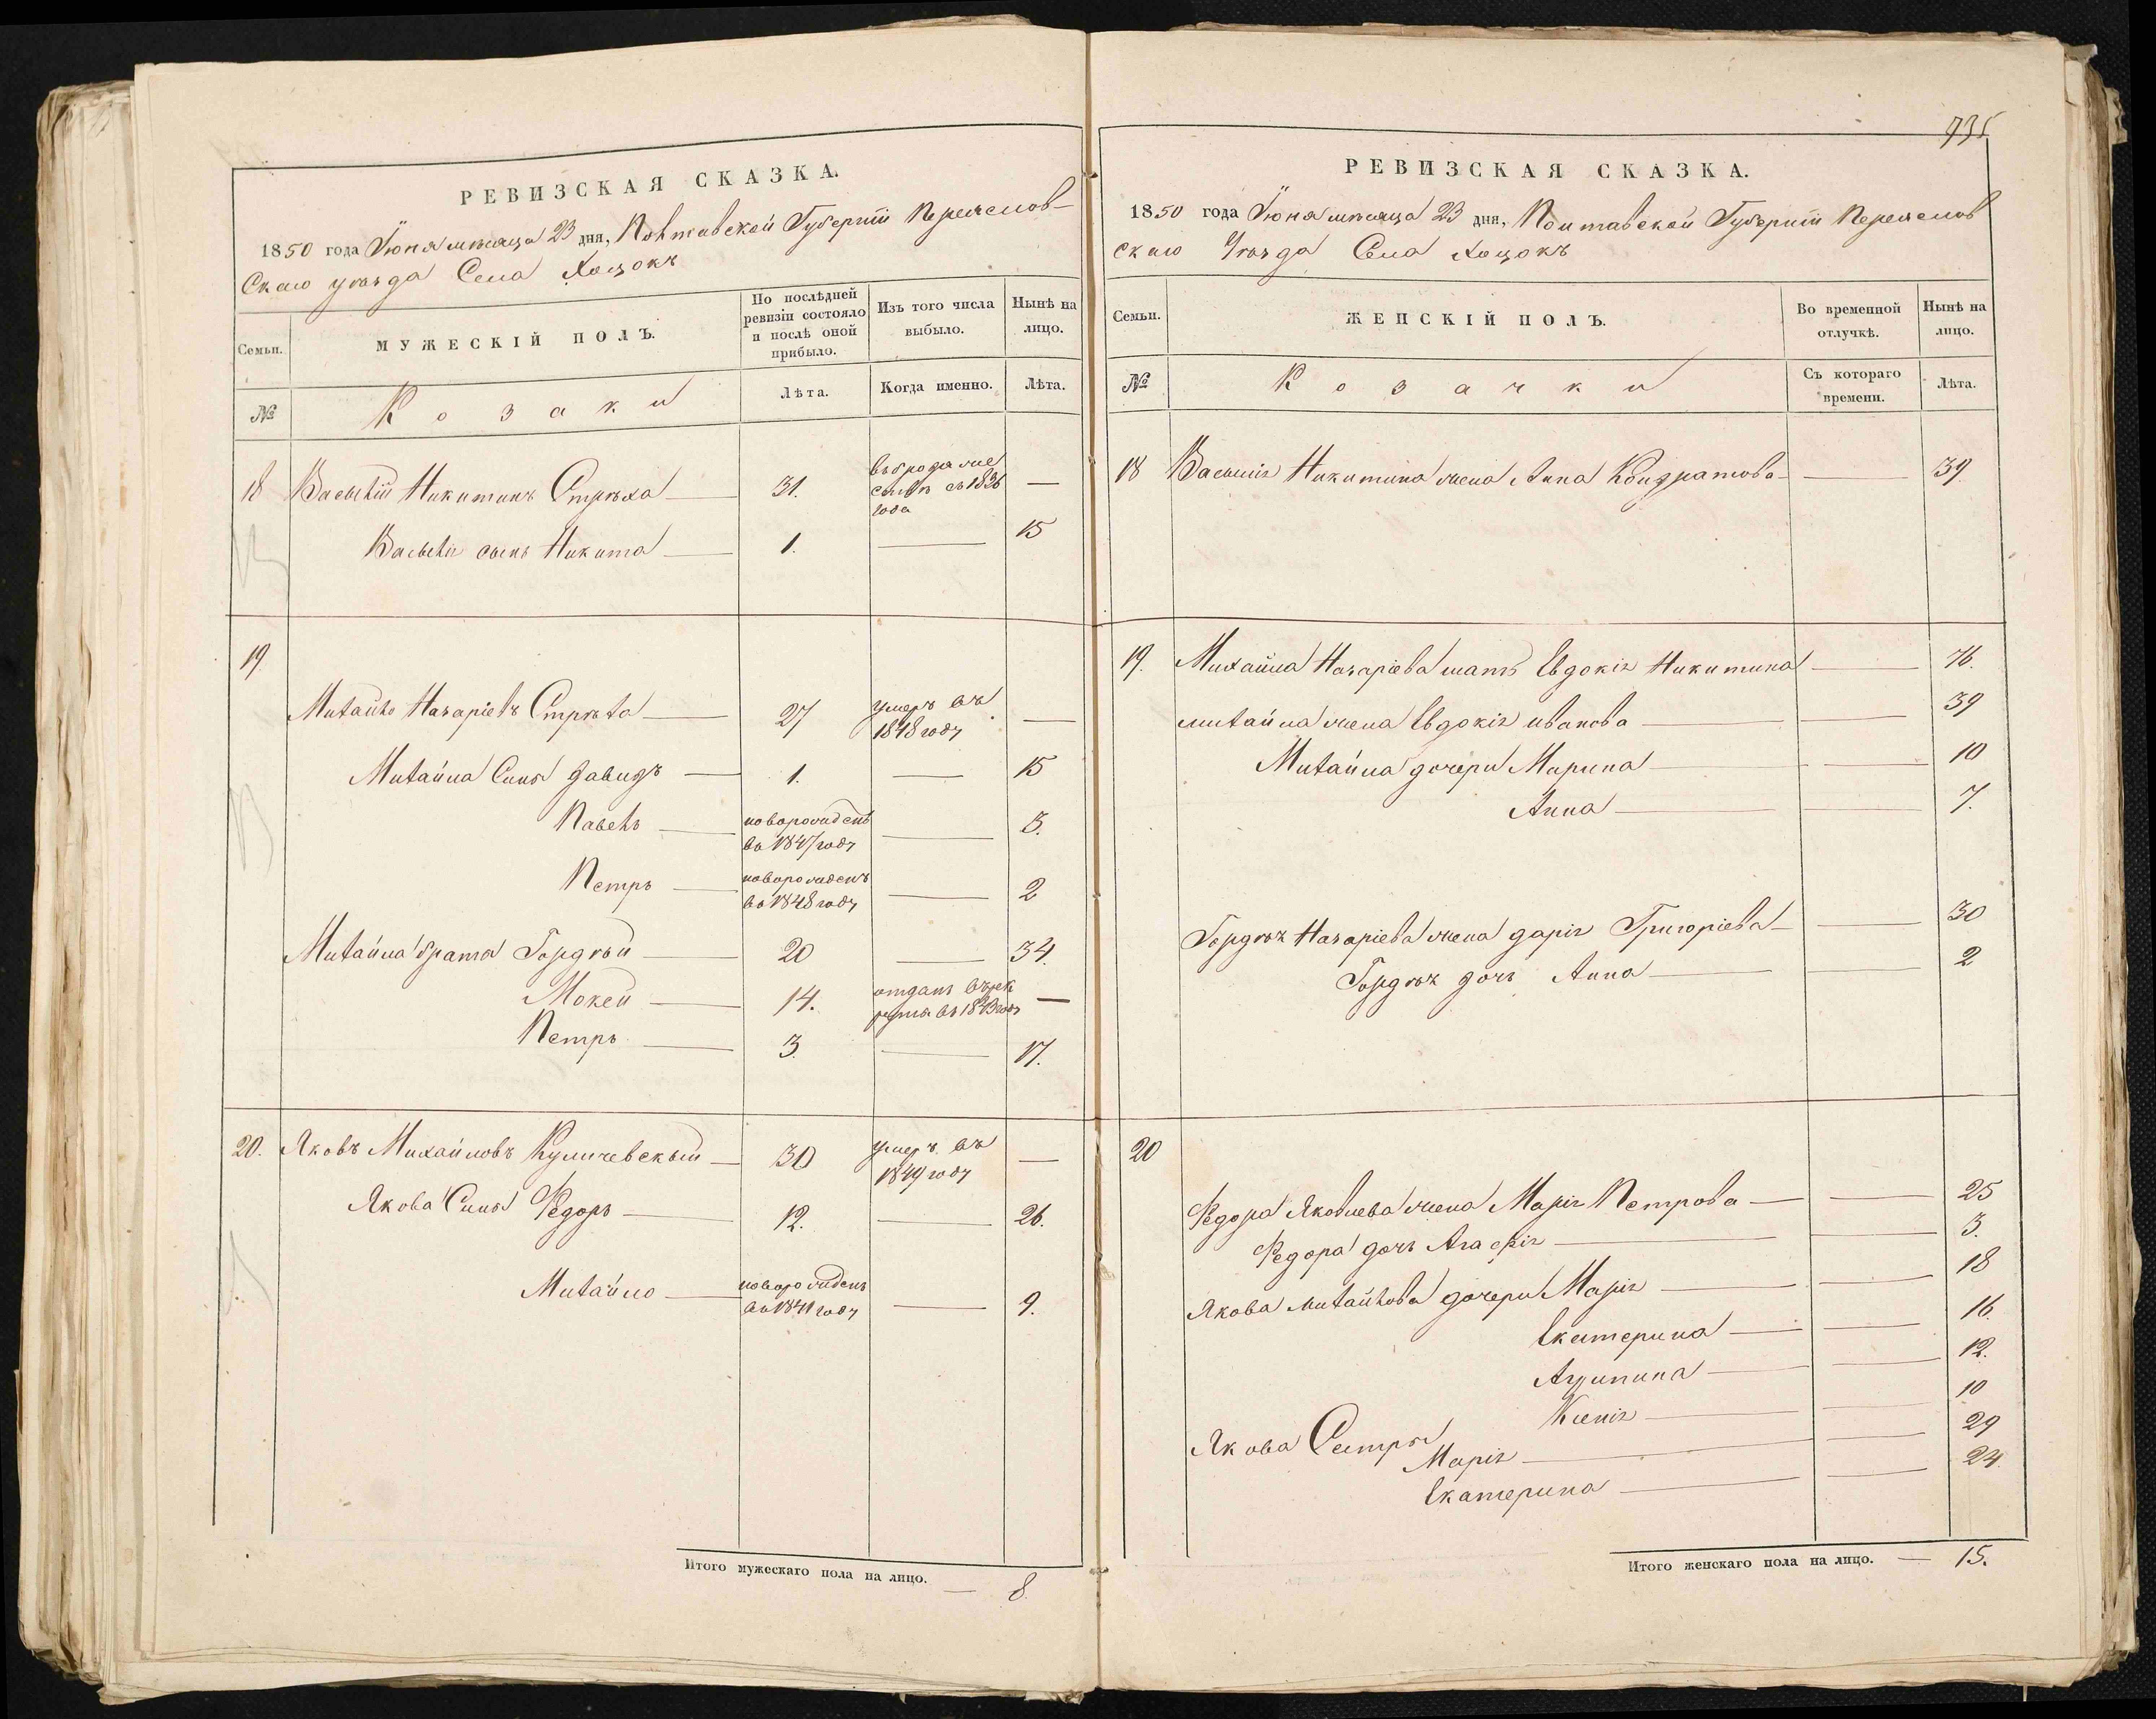 РЕВИЗСКАЯ СКАЗКА.
1850 года Іюня мѣсяца 23 дня, Полтавской Губерніи Переяслов-
скаго уѣзда Села Хоцокъ
Семьи.
МУЖЕСКІЙ ПОЛЪ.
По послѣдней ревизіи состояло и послѣ оной прибыло.
Изъ того числа выбыло.
Нынѣ на лицо.
№
Козаки
Лѣта.
Когда именно.
Лѣта.
18 Василій Никитинъ Стрѣха 31. —
года
Василія сынъ Никита 1. — 15
19
Михайло Назаріевъ Стрѣха 27 умеръ въ 1848 году —
Михайла Сыны Давидъ 1. — 15
Павелъ новорожденъ во 1847 году — 3.
Петръ новорожденъ во 1848 году — 2
Михайла брата Гордѣй 20 — 34.
Мокей 14. отданъ въ рек
руты въ 1843 году —
Петръ 3. — 17.
20. Яковъ Михайловъ Куличевскый 30 умеръ въ 1849 году —
Якова Сыны Федоръ 12. — 26.
Михайло новорожденъ во 1841 году — 9.
Итого мужескаго пола на лицо. — 8.
735
РЕВИЗСКАЯ СКАЗКА.
1850 года Іюня мѣсяца 23 дня, Полтавской Губерніи Переяслов
скаго Уѣзда Села Хоцокъ
Семьи.
ЖЕНСКІЙ ПОЛЪ.
Во временной отлучкѣ.
Нынѣ на лицо.
№
Козачки
Съ котораго времени.
Лѣта.
18 Василія Никитина жена Анна Кондратова — 39
19. Михайла Назаріева мать Евдокія Никитина — 76.
михайла жена Евдокія иванова — 39
Михайла дочери Марина — 10
Анна — 7.
Гордѣя Назаріева жена дарія Григоріева — 30
Гордѣя дочь Анна — 2
20
Федора Яковлева жена Марія Петрова — 25
Федора дочь Агафія — 3.
Якова михайлова дочери Марія — 18
Екатерина — 16.
Агрипина — 12.
Ксенія — 10
Якова Сестры
Марія — 29
Екатерина — 24.
Итого женскаго пола на лицо. — 15.